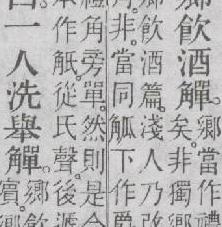 飲酒觶
鄉當作
矣。非獨作
飲酒篇。淺人乃改
非。當同觚下作爵
角旁單。然則是今
作觗。從氏聲。後遞
一人洗舉觶。
鄉飲